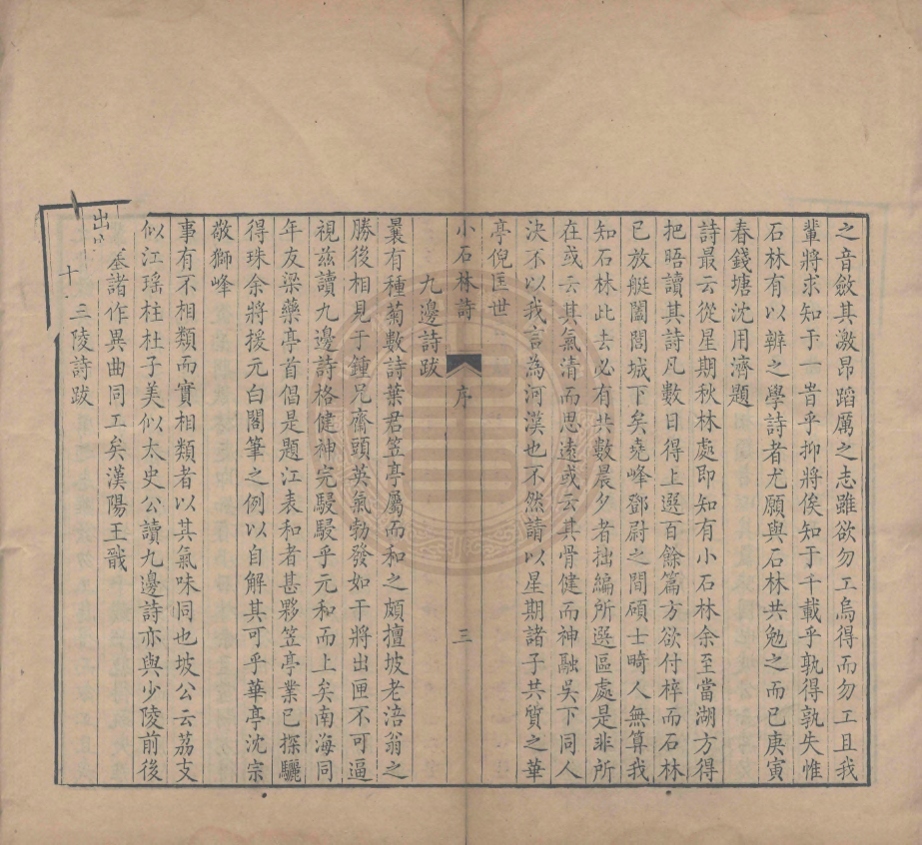 之音斂其激昂蹈厲之志雖欲勿工烏得而勿工且我
輩將求知于一時乎抑將俟知于千載乎孰得孰失惟
石林有以辨之學詩者尤願與石林共勉之而已庚寅
春錢塘沈用濟題
詩最云從星期秋林處即知有小石林余至當湖方得
把晤讀其詩凡數日得上選百餘篇方欲付梓而石林
已放艇闔閭城下矣堯峰鄧尉之間碩士畸人無算我
知石林此去必有共數晨夕者拙編所選區處是非所
在或云其氣清而思遠或云其骨健而神融吳下同人
決不以我言為河漢也不然請以星期諸子共質之華
亭倪匡世
小石林詩 序 三
九邊詩跋
曩有種菊數詩葉君笠亭屬而和之頗擅坡老涪翁之
勝後相見于鍾兄齋頭英氣勃發如干將出匣不可逼
視茲讀九邊詩格健神完駸駸乎元和而上矣南海同
年友梁藥亭首倡是題江表和者甚夥笠亭業已探驪
得珠余將援元白閣筆之例以自解其可乎華亭沈宗
敬獅峰
事有不相類而實相類者以其氣味同也坡公云荔支
似江瑤柱杜子美似太史公讀九邊詩亦與少陵前後
出
諸作異曲同工矣漢陽王戩
十
三陵詩跋